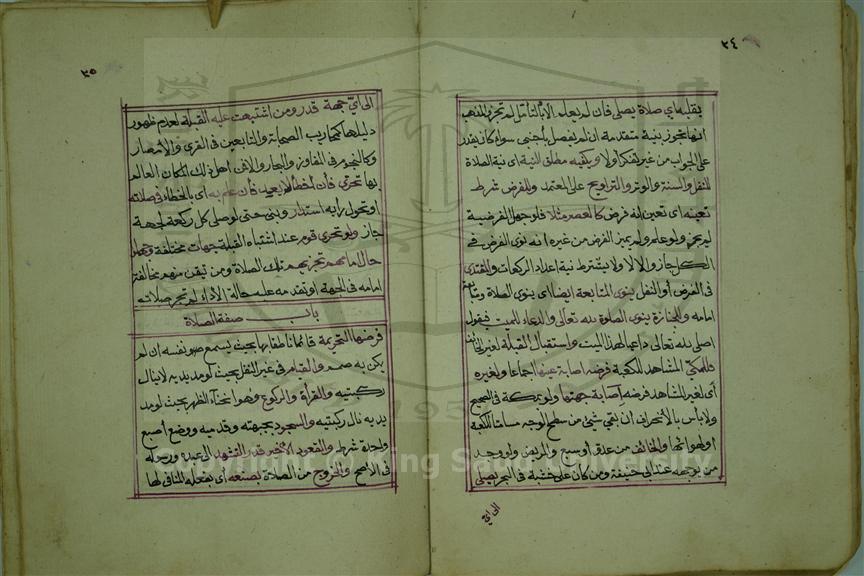 ٣٤
بقلبه اي صلاة يصلي فان لم يعلم الا بالتأمل لم تجز والمذهب
انها تجوز بنية متقدمة ان لم يفصل باجنبي سواء كان يقدر
على الجواب من غير تفكر أو لا ويكفيه مطلق النية اي نية الصلاة
للنفل والسنة والوتر والتراويح على المعتمد وللفرض شرط
تعيينه اي تعين انه فرض كالعصر مثلا فلو جهل الفرضية
لم يجز ولو علم ولم يميز الفرض من غيره انه نوى الفرض في
الكل جاز والا لا ولا يشترط نية اعداد الركعات والمقتدي
في الفرض أو النفل ينوي المتابعة ايضا اي ينوي الصلاة
امامه والجنازة ينوي الصلوة لله تعالى والدعاء للميت فيقول
اصلي لله تعالى داعيا لهذا الميت واستقبال القبلة لغير
فللمكي المشاهد للكعبة فرضه اصابة عينها اجماعا ولغيره
اي لغير المشاهد فرضه اصابة جهتها ولو بمكة في الصحيح
ولا بأس بالانحراف ان بقي شئ من سطح الوجه مسامتا للكعبة
او لهوائها والخائف من عدو أو سبع والمريض ولو وجد
من يوجهه عند ابي حنيفة ومن كان على خشبة في البحر يصلي
الى اي
٣٥
الى اي جهة قدر ومن اشتبهت عليه القبلة لعدم ظهور
دليلها كمحاريب الصحابة والتابعين في القرى والامصار
وكالنجوم في المفاوز والبحار ولا من اهل ذلك المكان العالم
بها تحرى فان اخطأ لا يعيد فان علم به اي بالخطاء في صلاته
او تحول رايه استدار وبنى حتى لو صلى كل ركعة لجهة
جاز ولو تحرى قوم عند اشتباه القبلة جهات مختلفة وجهلوا
حال امامهم تجزيهم تلك الصلاة ومن تيقن منهم مخالفة
امامه في الجهة او تقدمه عليه حالة الاداء لم تجز صلاته
باب صفة الصلاة
فرضها التحريمة قائما نطقا بها بحيث يسمع صوته نفسه ان لم
يكن به صمم والقيام في غير النفل بحيث لو مد يديه لا ينال
ركبتيه والقرأة والركوع وهو انحناء الظهر بحيث لو مد
يديه نال ركبتيه والسجود بجبهته وقدميه ووضع اصبع
واحدة شرط والقعود الاخير قدر التشهد الى عبده ورسوله
في الاصح والخروج من الصلاة بصنعه اي بفعله المنافي لها
Copyright © King Saud University
195